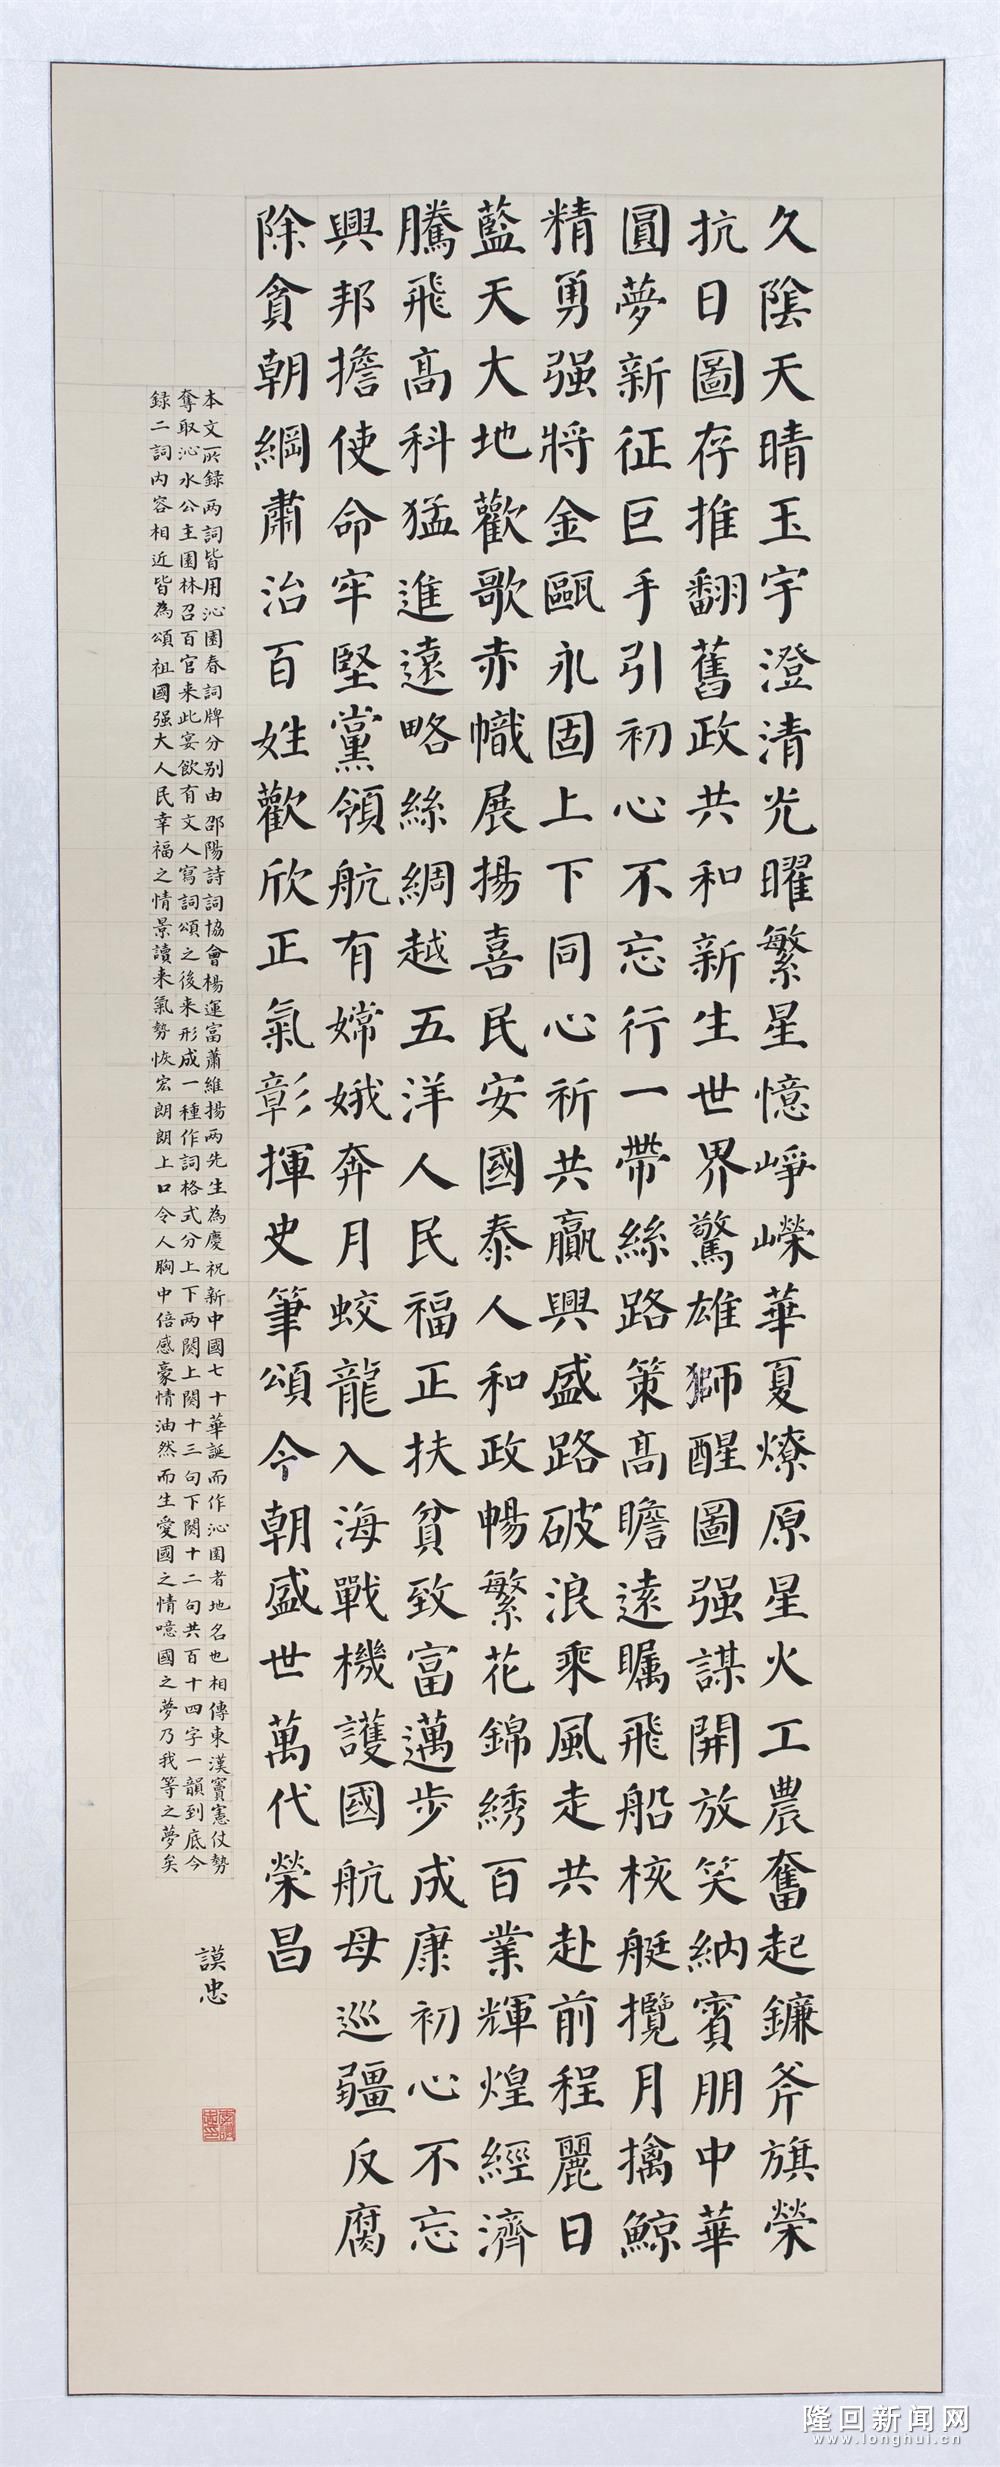 久陰天晴玉宇澄清光曜繁星憶崢嶸華夏燎原星火工農奮起鐮斧旗榮
抗日圖存推翻舊政共和新生世界驚雄獅醒圖强謀開放笑納賓朋中華
圓夢新征巨手引初心不忘行一帶絲路策高瞻遠矚飛船核艇攬月擒鯨
精勇强將金甌永固上下同心祈共贏興盛路破浪乘風走共赴前程麗日
藍天大地歡歌赤幟展揚喜民安國泰人和政暢繁花錦綉百業輝煌經濟
騰飛高科猛進遠略絲綢越五洋人民福正扶貧致富邁步成康初心不忘
興邦擔使命牢堅黨領航有嫦娥奔月蛟龍入海戰機護國航母巡疆反腐
除貪朝綱肅治百姓歡欣正氣彰揮史筆頌今朝盛世萬代榮昌
本文所録两詞皆用沁園春詞牌分别由邵陽詩詞協會楊運富蕭維揚两先生為慶祝新中國七十華誕而作沁園者地名也相傳東漢竇憲仗勢
奪取沁水公主園林召百官来此宴飲有文人寫詞頌之後来形成一種作詞格式分上下两闋上闋十三句下闋十二句共百十四字一韻到底今
録二詞内容相近皆為頌祖國强大人民幸福之情景讀来氣勢恢宏朗朗上口令人胸中倍感豪情油然而生愛國之情噫國之夢乃我等之夢矣
謨忠
隆回新闻网
www.longhui.cn